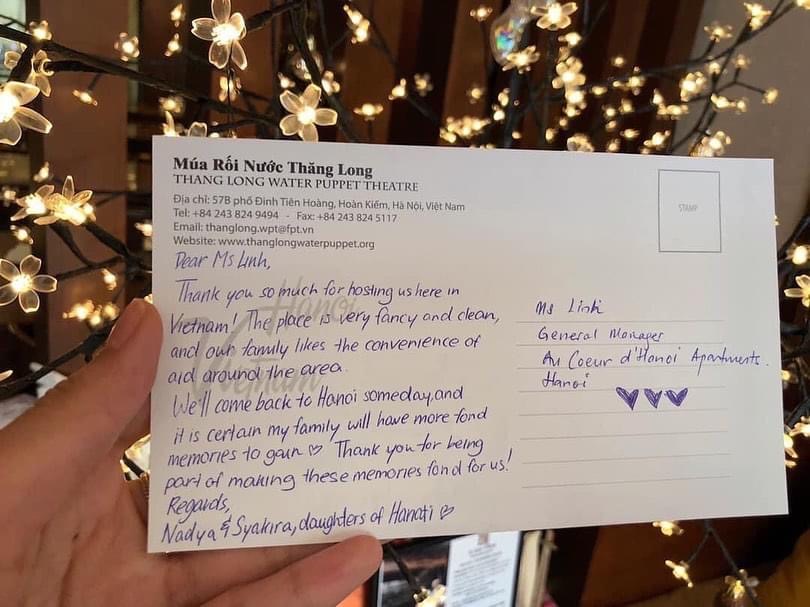 Múa Rối Nước Thăng Long
THANG LONG WATER PUPPET THEATRE
Địa chỉ: 57B phố Đinh Tiên Hoàng, Hoàn Kiếm, Hà Nội, Việt Nam
Tel: +84 243 824 9494 - Fax: +84 243 824 5117
Email: thanglong.wpt@fpt.vn
Website: www.thanglongwaterpuppet.org
STAMP
Dear Ms Linh,
Thank you so much for hosting us here in
Vietnam! The place is very fancy and clean,
and our family likes the convenience of
aid around the area.
We'll come back to Hanoi someday, and
it is certain my family will have more fond
memories to gain ♡ Thank you for being
part of making these memories fond for us!
Regards,
Nadya & Syakira, daughters of Hanati ♡
Hanoi
Vietnam
Ms Linh
General Manager
Au Coeur d'Hanoi Apartments.
Hanoi